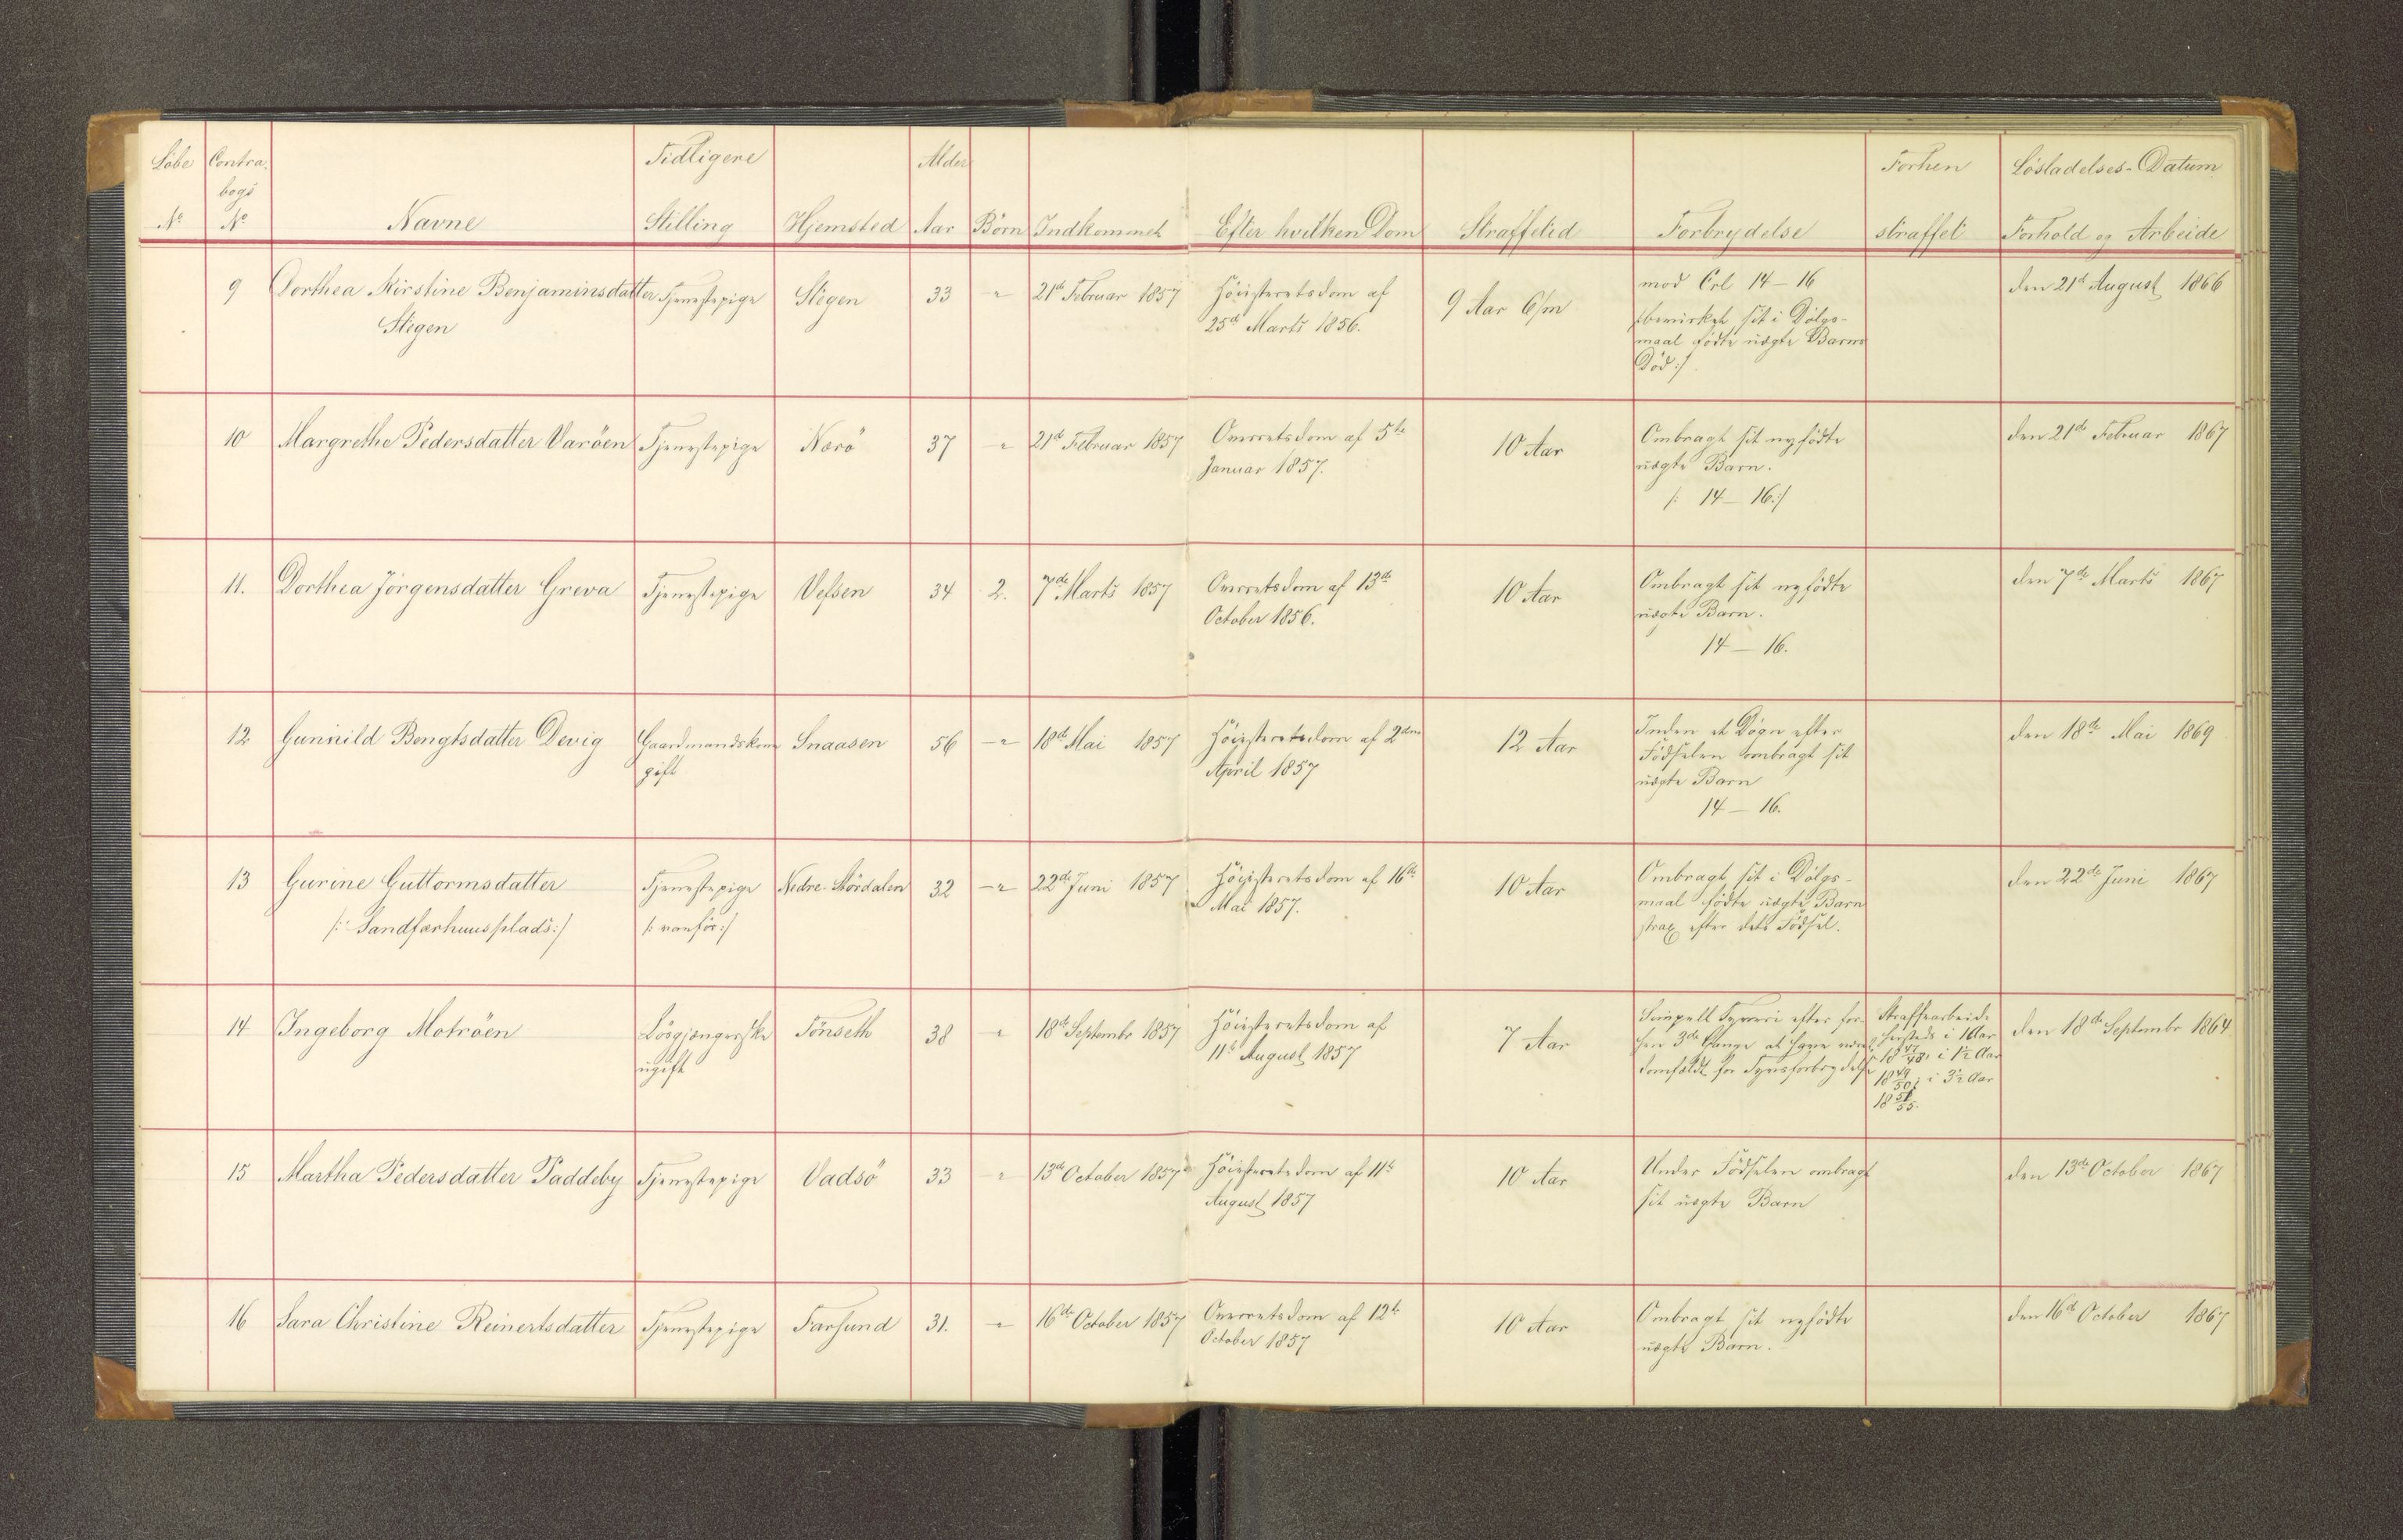 Löbe Contra Tidligere Alder Forhen Löslades-Datum
bogs
No No Navne Stilling Hjemsted Aar Börn Indkommet Efter hvilken Dom Straffetid Forbrydelse straffet Forhold og Arbeide
9 Dorthea Kirstine Benjaminsdatter Tjenestepige Stegen 33 " 21de Februar 1857 Höiesteretsdom af 9 Aar 6/m mod Crl 14-16 den 21de August 1866
Stegen 25de Marts 1856. /:bevirket sit i Dölgs-
maal födte uægte Barns
Död:/
10 Margrethe Pedersdatter Varöen Tjenestepige Nærö 37 " 21de Februar 1857 Overretsdom af 5te 10 Aar Ombragt sit nyfödte den 21de Februar 1867
Januar 1857. uægte Barn.
/: 14-16:/
11. Dorthea Jörgensdatter Greva Tjenestepige Vefsen 34 2. 7de Marts 1857 Overretsdom af 13de 10 Aar Ombragt sit nyfödte den 7de Marts 1867
October 1856. uægte Barn.
14-16.
12 Gunhild Bengtsdatter Devig Gaardmandskone Snaasen 56 " 18de Mai 1857 Höiesteretsdom af 2den 12 Aar Inden et Dögn efter den 18de Mai 1869
gift April 1857 Födselen ombragt sit
uægte Barn
14-16.
13 Gurine Guttormsdatter Tjenestepige Nedre-Stördalen 32 " 22de Juni 1857 Höiesteretsdom af 16de 10 Aar Ombragt sit i Dölgs- den 22de Juni 1867
/: Sandfærhuusplads:/ /: vanför:/ Mai 1857. maal födte uægte Barn
strax efter dets Födsel.
14 Ingeborg Motröen Lösgjængerske Tönseth 38 " 18de Septembr 1857 Höiesteretsdom af 7 Aar Simpelt Tyveri efter for- Straffearbeide den 18de Septembr 1864
ugift 11te August 1857 hen 3de Gange at have været herstede i 1 Aar
domfældt for Tyvsforbrydelse 18 47/48, i 1½ Aar
18 49/50, i 3½ Aar
18 51/55.
15 Martha Pedersdatter Paddeby Tjenestepige Vadsö 33 " 13de October 1857 Höiesteretsdom af 11te 10 Aar Under Födselen ombragt den 13de October 1867
August 1857 sit uægte Barn
16 Sara Christine Reinertsdatter Tjenestepige Farsund 31. " 16de October 1857 Overretsdom af 12te 10 Aar Ombragt sit nyfödte den 16de October 1867
October 1857 uægte Barn.